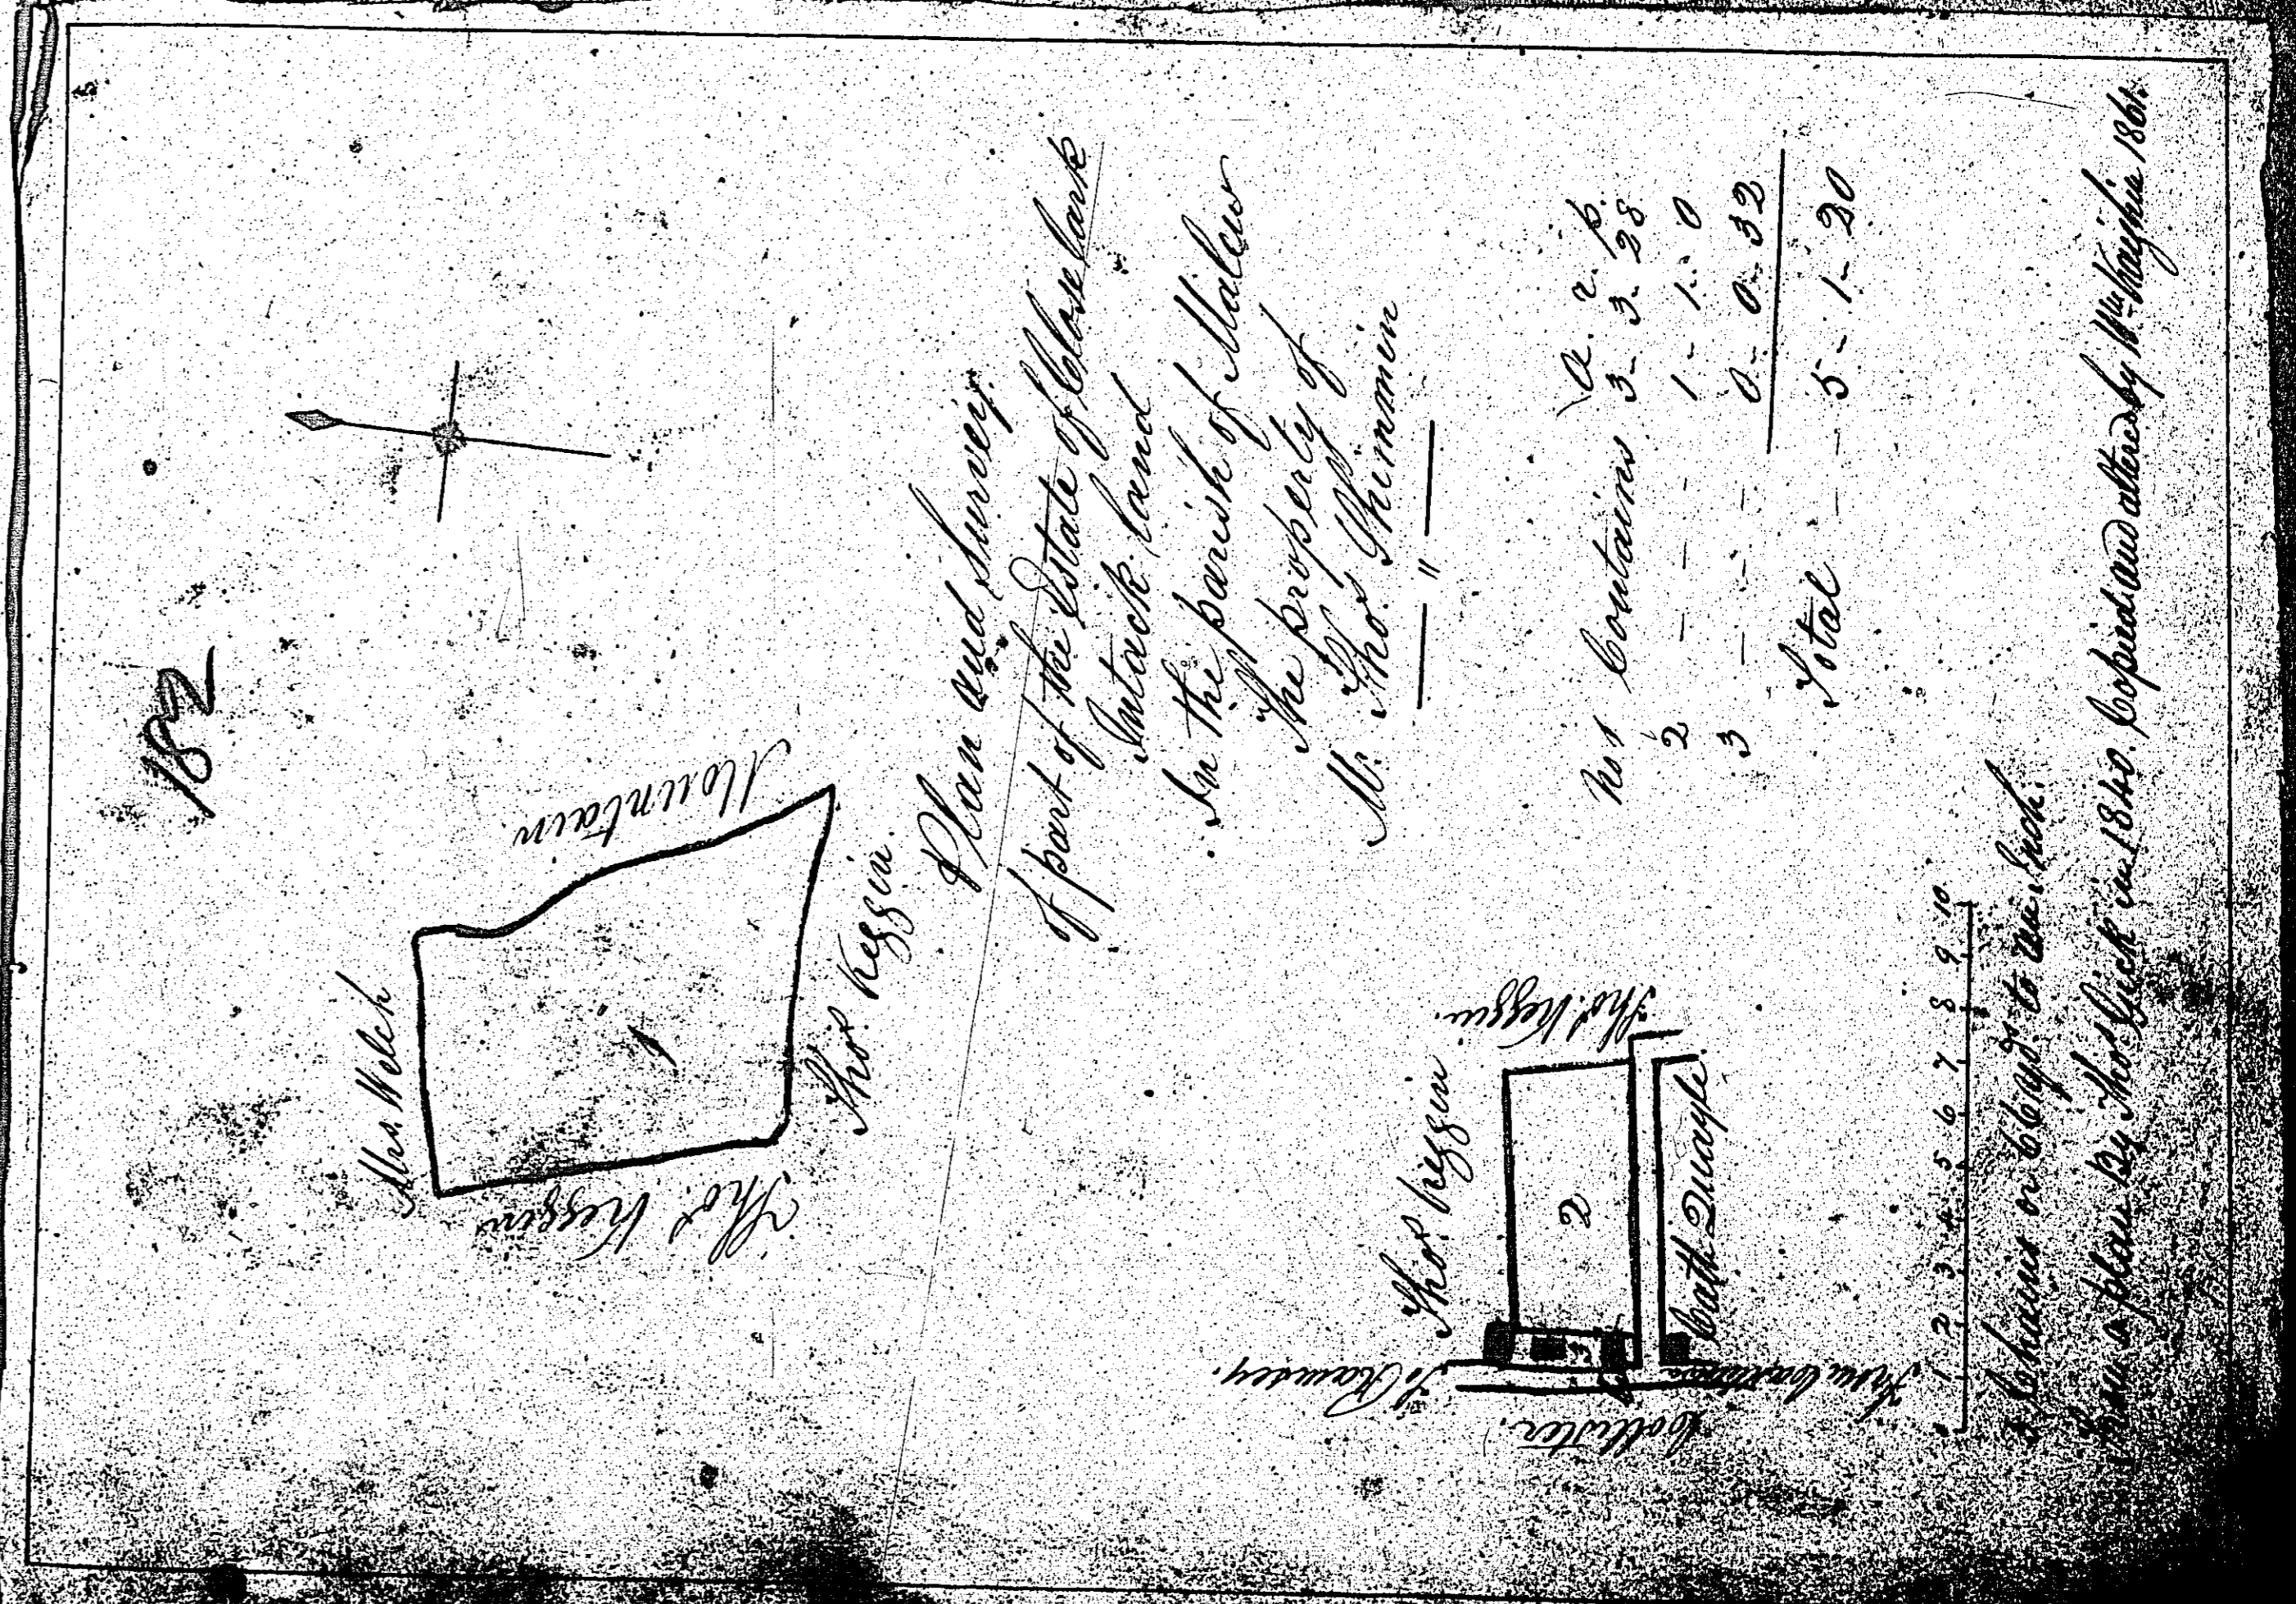 182
Mrs. Welch
Mountain.
1
Thos. Keggin
Thos. Keggin.
Plan and Survey.
of part of the Estate of Closelark
Intack land
In the parish of Malew
The property of
Mr. Thos. Shimmin
"
Thos. Keggin
Thos. Keggin.
To Ramsey.
2
3
Collister.
Cath. Quayle.
a. r. p.
No 1 Contains 3- 3- 28
2 - - - 1- 1- 0
3 - - - 0- 0- 32
Total - - 5- 1- 20
1 2 3 4 5 6 7 8 9 10
Chains or 66 yds. to an Inch.
From a plan By Thos. Gick in 1840. Copied and altered by Wm. 1861.